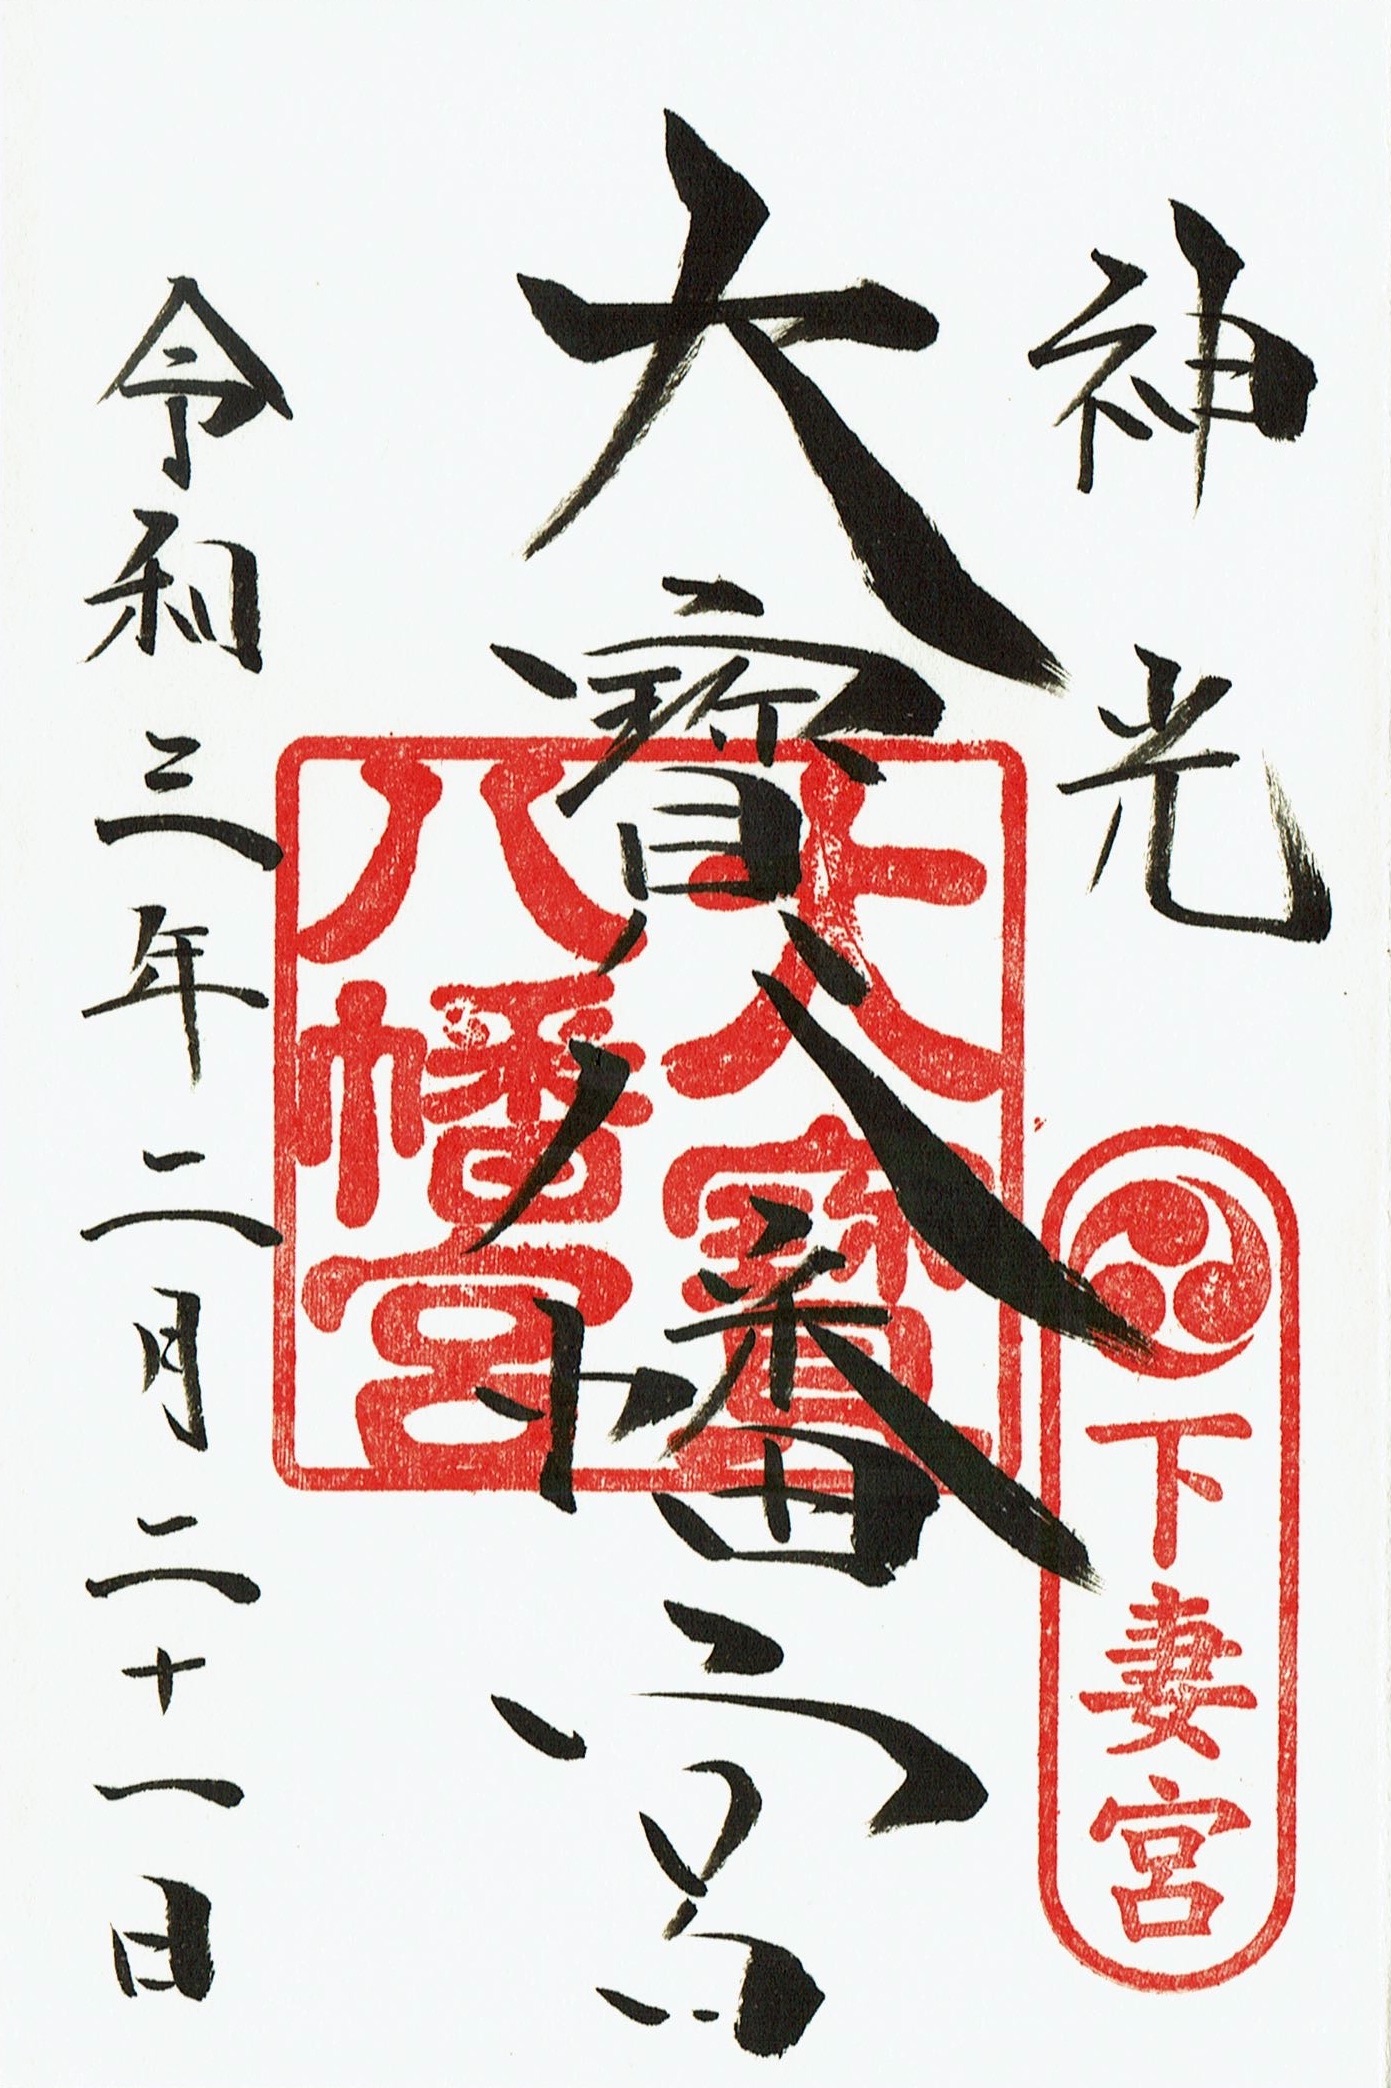 神光
下妻宮
大寳八幡宮
大寳
八幡宮
令和三年二月二十一日